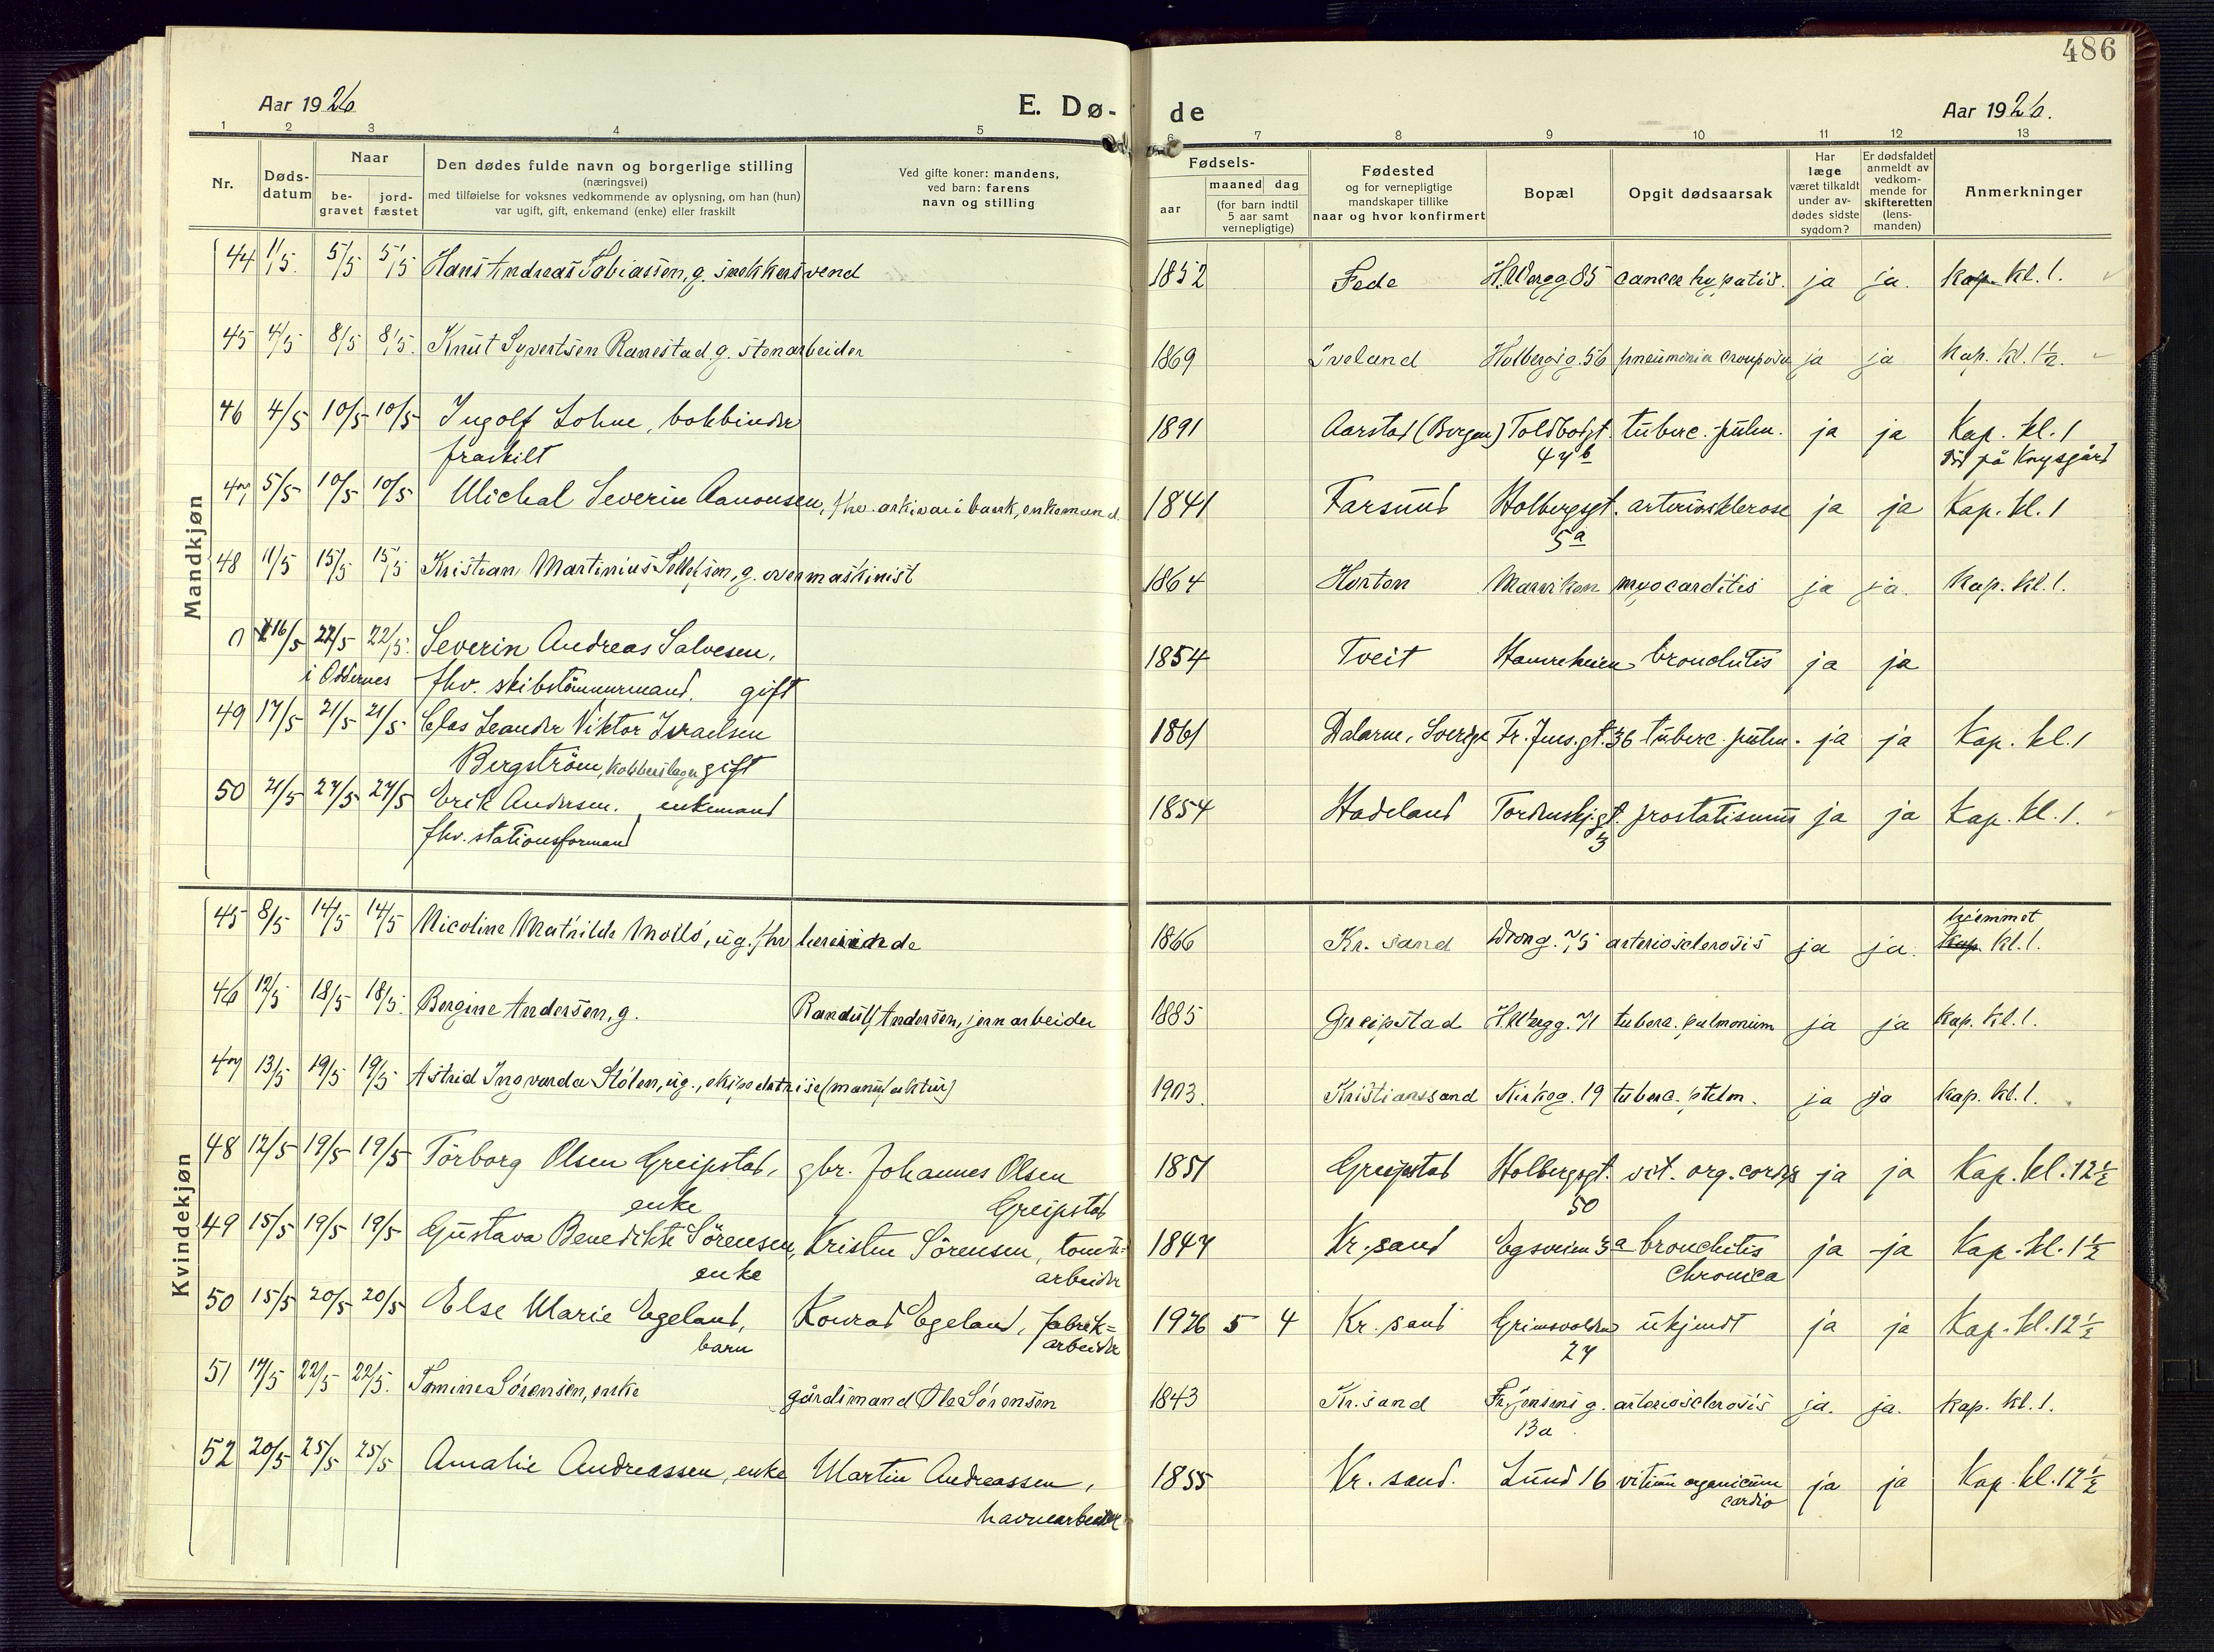 486
Aar 1926
E. Dø-
de
Aar 1926.
1 2 3 4 5 6 7 8 9 10 11 12 13
Nr.
Døds-
datum
Naar
be-
gravet
jord-
fæstet
Den dødes fulde navn og borgerlige stilling
(næringsvei)
med tilføielse for voksnes vedkommende av oplysning, om han (hun)
var ugift, gift, enkemand (enke) eller fraskilt
Ved gifte koner: mandens,
ved barn: farens
navn og stilling
Fødsels-
aar
maaned dag
(for barn indtil
5 aar samt
vernepligtige)
Fødested
og for vernepligtige
mandskaper tillike
naar og hvor konfirmert
Bopæl
Opgit dødsaarsak
Har
læge
været tilkaldt
under av-
dødes sidste
sygdom?
Er dødsfaldet
anmeldt av
vedkom-
mende for
skifteretten
(lens-
manden)
Anmerkninger
Mandkjøn
44 1/5. 5/5 5/5 Hans Andreas Tobiassen, g. snekkersvend 1852 Fede H.Wergg 85 cancer hypatis. ja ja. Kap. kl. 1.
45 4/5 8/5 8/5. Knut Syvertsen Ranestad g. stenarbeider 1869 Iveland Holbergsg. 56 pneumonia crouposa ja ja Kap. kl. 1½.
46 4/5 10/5 10/5 Ingolf Lohne, bokbinder 1891 Aarstad (Bergen) Toldbodgt. tuberc. pulm. ja ja Kap. kl. 1
fraskilt 47b død på Kongsgård
47 5/5 10/5 10/5 Michal Severin Aanonsen, fhv. arkivar i bank, enkemand. 1841 Farsund Holbergsgt. arteriosklerose ja ja Kap. kl. 1
5a
48 11/5 15/5 15/5 Kristian Martinius Sellefsen, g. overmaskinist 1864 Horten Marviken myocarditis ja ja. Kap. kl. 1.
0 16/5 22/5 22/5. Severin Andreas Salvesen, 1854 Tveit Hamreheien bronchitis ja ja
i Oddernes fhv. skibstømmermand. gift
49 17/5 21/5 21/5 Clas Leander Viktor Israelsen 1861 Dalarne, Sverige Fr. Jens.gt. 36 tuberc. pulm. ja ja Kap. kl. 1
Bergström, kobberslager gift
50 21/5 27/5 27/5 Erik Andersen. enkemand 1854 Hadeland Tordenskj.gt. prostatismus ja ja Kap. kl. 1.
fhv. stationsformand 3
Kvindekjøn
45 8/5 14/5 14/5 Nicoline Mathilde Moilô, ug. fhv lærerinde 1866 Kr. sand Drong. 75 arteriosclerosis ja ja. hjemmet
Kap. kl. 1.
46 12/5 18/5 18/5. Bergine Andersen, g. Randulf Andersen, jernarbeider 1885 Greipstad H.Wergg. 71 tuberc. pulmonum ja ja Kap. kl. 1.
47 13/5 19/5 19/5 Astrid Ingvarda Stölen, ug., ekspeditrise (manufaktur) 1903. Kristianssand Kirkeg. 19 tuberc. pulm. ja ja Kap. kl. 1.
48 12/5 19/5 19/5 Torborg Olsen Greipstad, gbr. Johannes Olsen 1851 Greipstad Holbergsgt. vit. org. cordis ja ja Kap. kl. 12½
enke Greipstad 50
49 15/5 19/5 19/5 Gustava Benedikte Sörensen, Kristen Sörensen, tomte- 1847 Kr. sand Egsveien 3a bronchitis ja ja Kap. kl. 1½
enke arbeider chronica
50 15/5 20/5 20/5 Else Marie Egeland, Konrad Egeland, fabrik= 1926 5 4 Kr. sand Grimsvolden ukjendt ja ja Kap. kl. 12½
barn arbeider 27
51 17/5 22/5 22/5. Tomine Sörensen, enke gårdsmand Ole Sörensen 1843 Kr. sand Fr. Jensens g. arteriosclerosis ja. ja. Kap. kl. 1.
13a
52 20/5 25/5 25/5 Amalie Andreassen, enke Martin Andreassen, 1855 Kr. sand. Lund 16 vitium organicum ja ja Kap. kl. 12½
havnearbeider cordis